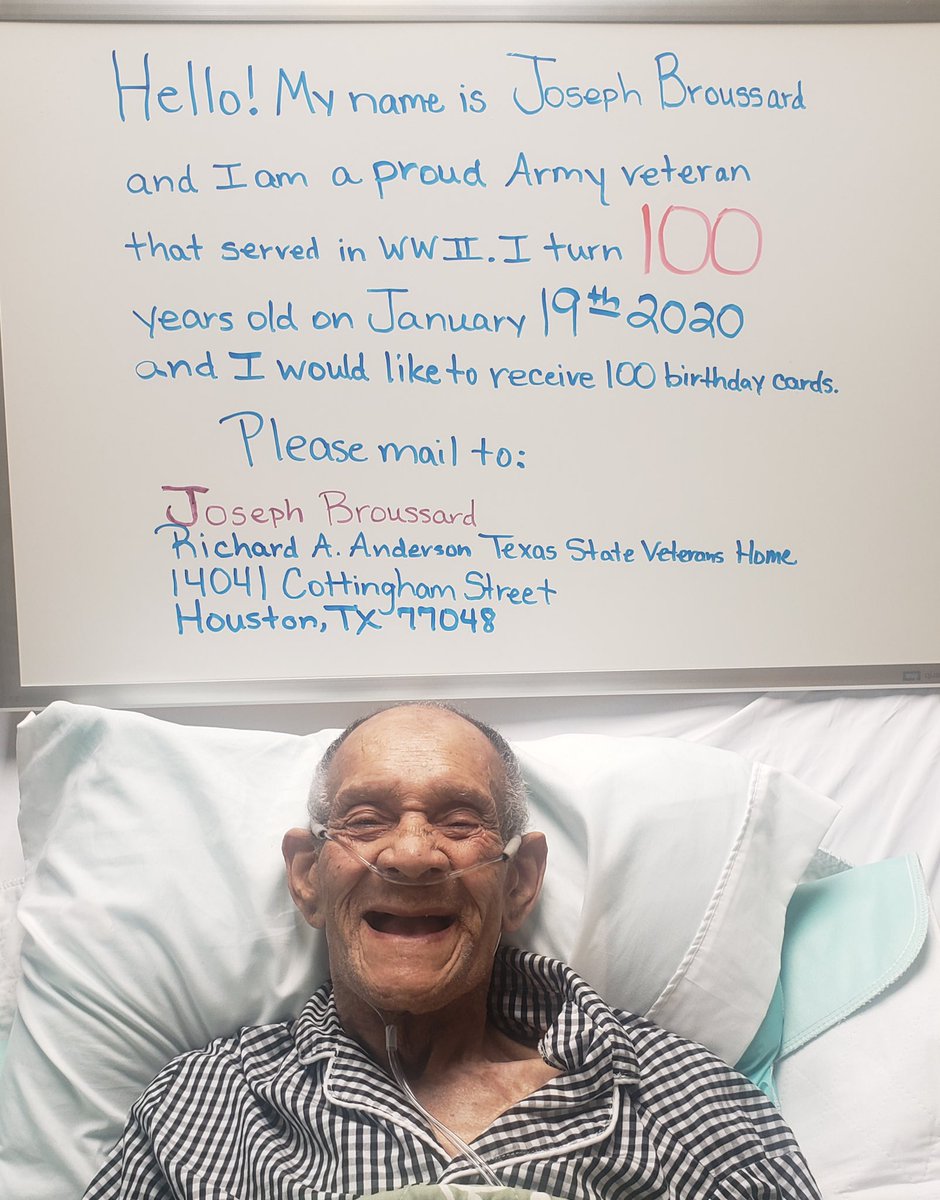 Hello! My name is Joseph Broussard
and I am a proud Army veteran
that served in WWII. I turn 100
years old on January 19th 2020
and I would like to receive 100 birthday cards.
Please mail to:
Joseph Broussard
Richard A. Anderson Texas State Veterans Home
14041 Cottingham Street
Houston, TX 77048